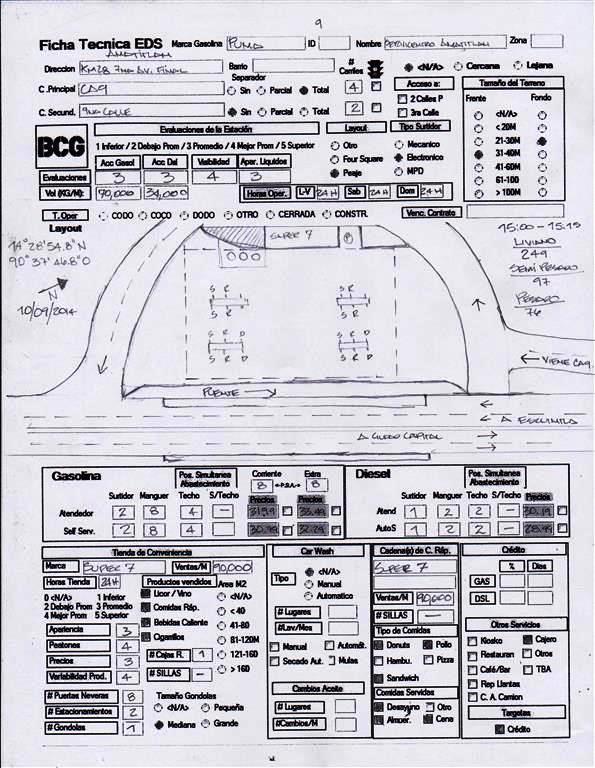 9
Ficha Tecnica EDS Marca Gasolina PUMA ID Nombre Zona
AMATITLAN
Direccion KM28 7MA AV. FINAL Barrio # Carriles <N/A> Cercana Lejana
Separador
C.Principal CA9 Sin Parcial Total 4 Acceso a: Tamaño del Terreno
C. Secund. 9NA CALLE Sin Parcial Total 2 2 Calles P 3ra Calle Frente Fondo
BCG Evaluaciones de la Estación Layout Tipo Surtidor <N/A>
1 Inferior / 2 Debajo Prom / 3 Promedio / 4 Mejor Prom / 5 Superior Otro Mecanico < 20M
Acc Gasol Acc Dsl Viabilidad Apar. Liquidos Four Square Electronico 21-30M
Evaluaciones 3 3 4 3 Peaje MPD 31-40M
41-60M
Vol (KG/M): 90,000 34,000 Horas Oper. L-V 24H Sab 24H Dom 24H 61-100
> 100M
T. Oper CODO COCO DODO OTRO CERRADA CONSTR. Venc. Contrato
Layout
14°28'54.8"N
90°37'46.8"O
N
10/09/2014
SUPER 7
P
15:00 - 15:15
LIVIANO
249
SEMI PESADO
97
PESADO
76
S R S R
S R S R
S R D S R D
S R D S R D
VIENE CA9
PUENTE
A ESCUINTLA
A CIUDAD CAPITAL
Gasolina Pos. Simultanea Abastecimiento Corriente Extra
8 P.B.A. 8
Surtidor Manguer Techo S/Techo Precios Precios
Atendedor 2 8 4 -
Self Serv. 2 8 4 -
Diesel Pos. Simultanea Abastecimiento
Surtidor Manguer Techo S/Techo Precios
Atend 1 2 2 -
AutoS 1 2 2 -
Tienda de Conveniencia
Marca SUPER 7 Ventas/M 90,000
Horas Tienda 24H Productos vendidos Area M2
0 <N/A> 1 Inferior
2 Debajo Prom 3 Promedio
4 Mejor Prom 5 Superior
Licor / Vino <N/A>
Comidas Ráp. < 40
Bebidas Caliente 41-80
Cigarrillos 81-120M
Apariencia 3
Peatones 4
Precios 3 # Cajas R. 1 121-160
Variabilidad Prod. 4 # SILLAS - > 160
# Puertas Neveras 8 Tamaño Gondolas
# Estacionamientos 2 <N/A> Pequeña
# Gondolas 1 Mediana Grande
Car Wash
Tipo <N/A>
Manual
Automatico
# Lugares
#Lav/Mes
Manual Automát.
Secado Aut. Mulas
Cambios Aceite
# Lugares
#Cambios/M
Cadena(s) de C. Ráp.
SUPER 7
Ventas/M 90,000
# SILLAS -
Tipo de Comidas
Donuts Pollo
Hambu. Pizza
Sandwich
Comidas Servidas
Desayuno Otro
Almuer. Cena
Crédito
% Dias
GAS
DSL
Otros Servicios
Kiosko Cajero
Restauran Otros
Café/Bar TBA
Rep Llantas
C. A. Camion
Tarjetas
Crédito